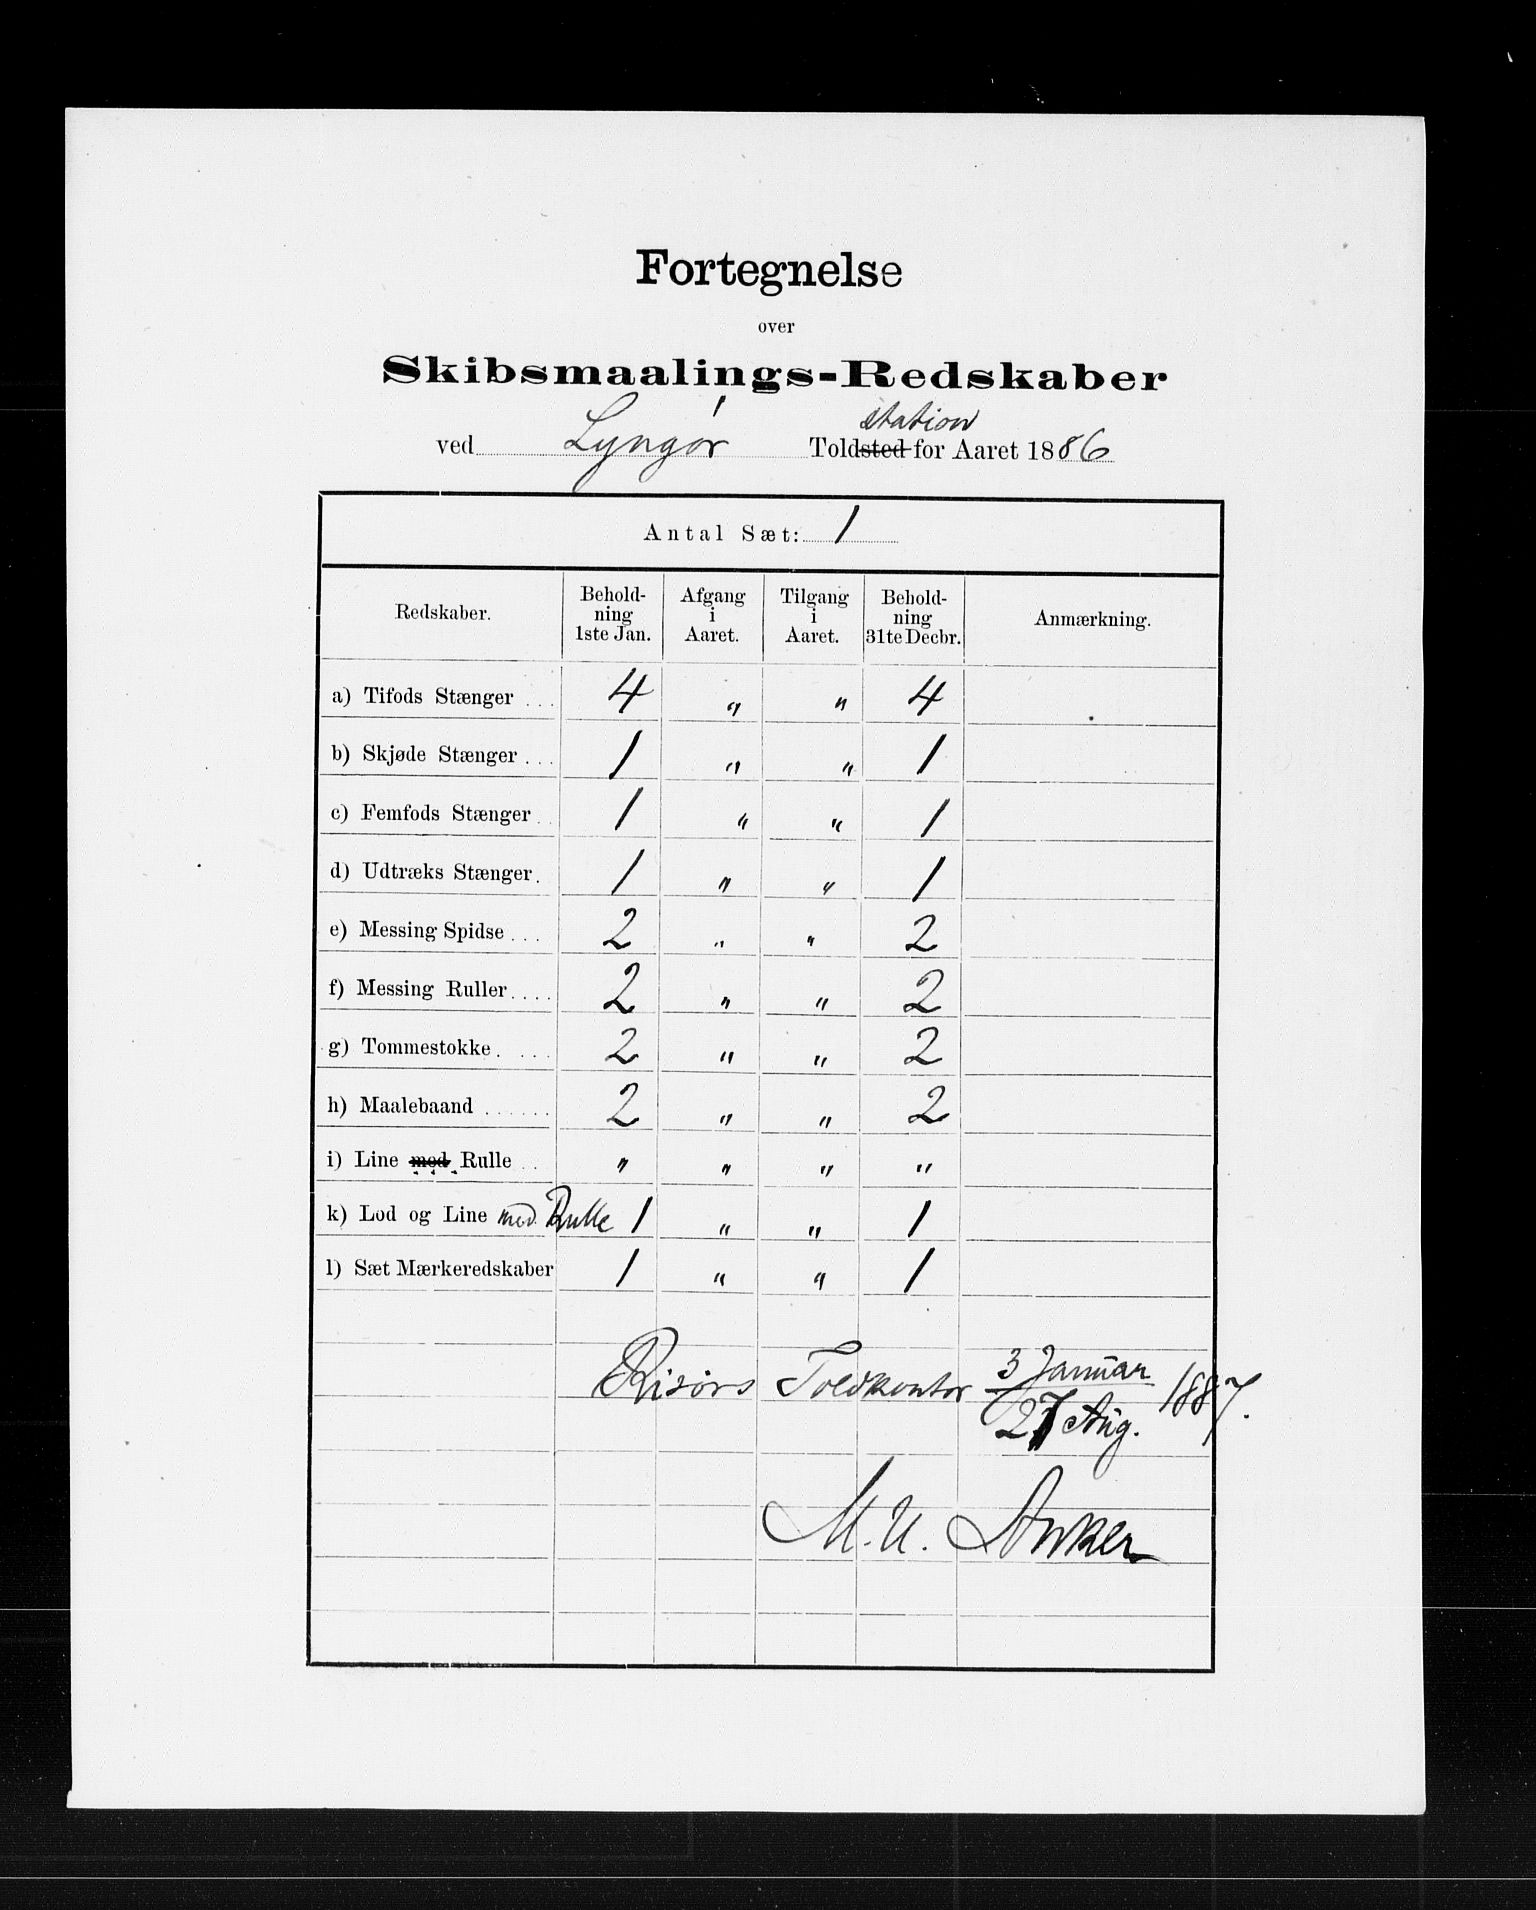 Fortegnelse
over
Skibsmaalings-Redskaber
station
ved Lyngør Toldsted for Aaret 1886
Antal Sæt: 1
Redskaber. Behold-ning 1ste Jan. Afgang i Aaret. Tilgang i Aaret. Behold-ning 31te Decbr. Anmærkning.
a) Tifods Stænger . . . 4 " " 4
b) Skjøde Stænger . . . 1 " " 1
c) Femfods Stænger . . 1 " " 1
d) Udtræks Stænger . 1 " " 1
e) Messing Spidse . . . 2 " " 2
f) Messing Ruller . . . . 2 " " 2
g) Tommestokke . . . . 2 " " 2
h) Maalebaand . . . . . . 2 " " 2
i) Line med Rulle . . " " " "
k) Lod og Line med Rulle 1 " " 1
l) Sæt Mærkeredskaber 1 " " 1
Risørs Toldkontor 3 Januar 1887.
27 Aug.
M. U. Anker